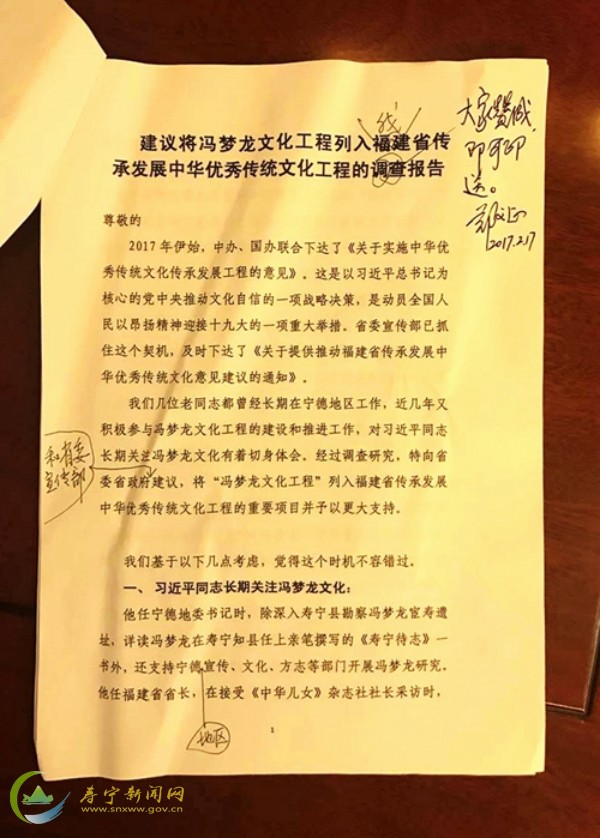 建议将冯梦龙文化工程列入福建省传
承发展中华优秀传统文化工程的调查报告
我
大家赞成,
即可印
送。
郑文正
2017.2.17
尊敬的
2017 年伊始,中办、国办联合下达了《关于实施中华优
秀传统文化传承发展工程的意见》。这是以习近平总书记为
核心的党中央推动文化自信的一项战略决策,是动员全国人
民以昂扬精神迎接十九大的一项重大举措。省委宣传部已抓
住这个契机,及时下达了《关于提供推动福建省传承发展中
华优秀传统文化意见建议的通知》。
我们几位老同志都曾经长期在宁德地区工作,近几年又
积极参与冯梦龙文化工程的建设和推进工作,对习近平同志
长期关注冯梦龙文化有着切身体会。经过调查研究,特向省
委省政府建议,将“冯梦龙文化工程”列入福建省传承发展
中华优秀传统文化工程的重要项目并予以更大支持。
和省委
宣传部
我们基于以下几点考虑,觉得这个时机不容错过。
一、习近平同志长期关注冯梦龙文化:
他任宁德地委书记时,除深入寿宁县勘察冯梦龙宦寿遗
址,详读冯梦龙在寿宁知县任上亲笔撰写的《寿宁待志》一
书外,还支持宁德宣传、文化、方志等部门开展冯梦龙研究。
他任福建省省长,在接受《中华儿女》杂志社社长采访时,
地区
1
寿宁新闻网
www.snxww.gov.cn